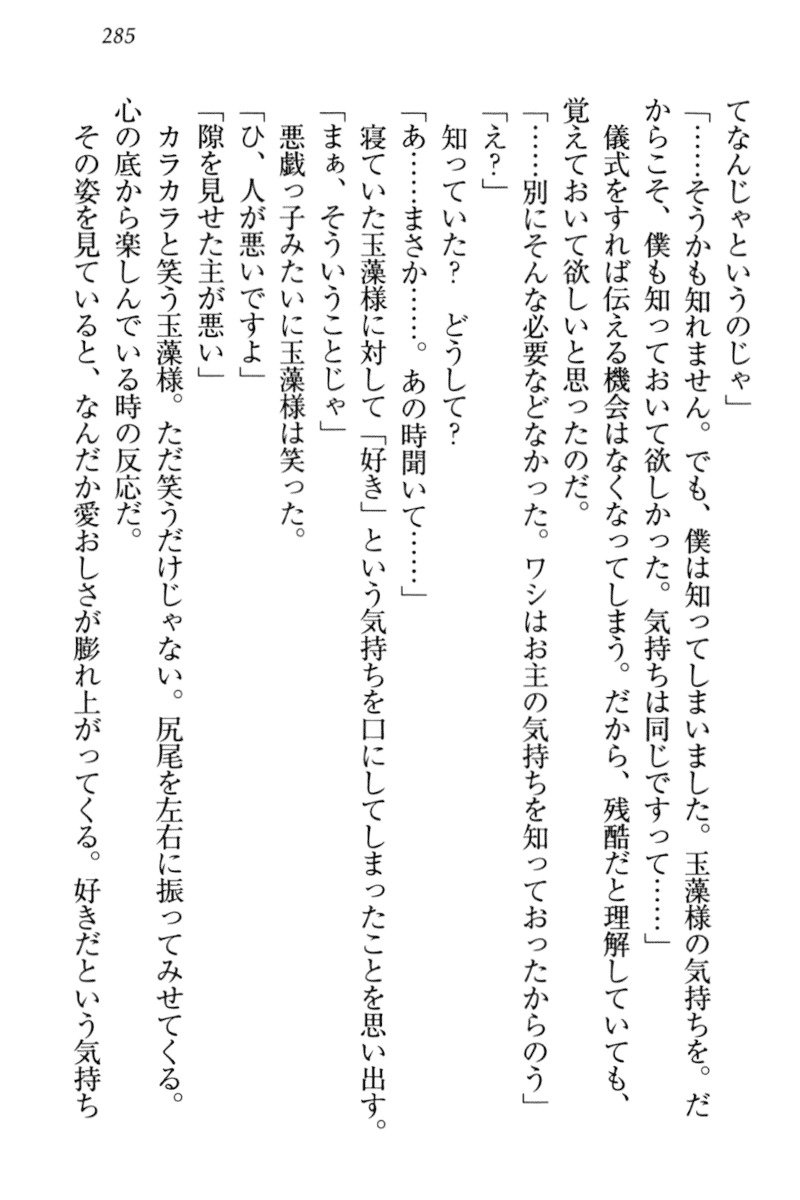 285
てなんじゃというのじゃ」
「……そうかも知れません。でも、僕は知ってしまいました。玉藻様の気持ちを。だ
からこそ、僕も知っておいて欲しかった。気持ちは同じですって……」
儀式をすれば伝える機会はなくなってしまう。だから、残酷だと理解していても、
覚えておいて欲しいと思ったのだ。
「……別にそんな必要などなかった。ワシはお主の気持ちを知っておったからのう」
「え？」
知っていた？　どうして？
「あ……まさか……。あの時聞いて……」
寝ていた玉藻様に対して「好き」という気持ちを口にしてしまったことを思い出す。
「まぁ、そういうことじゃ」
悪戯っ子みたいに玉藻様は笑った。
「ひ、人が悪いですよ」
「隙を見せた主が悪い」
カラカラと笑う玉藻様。ただ笑うだけじゃない。尻尾を左右に振ってみせてくる。
心の底から楽しんでいる時の反応だ。
その姿を見ていると、なんだか愛おしさが膨れ上がってくる。好きだという気持ち